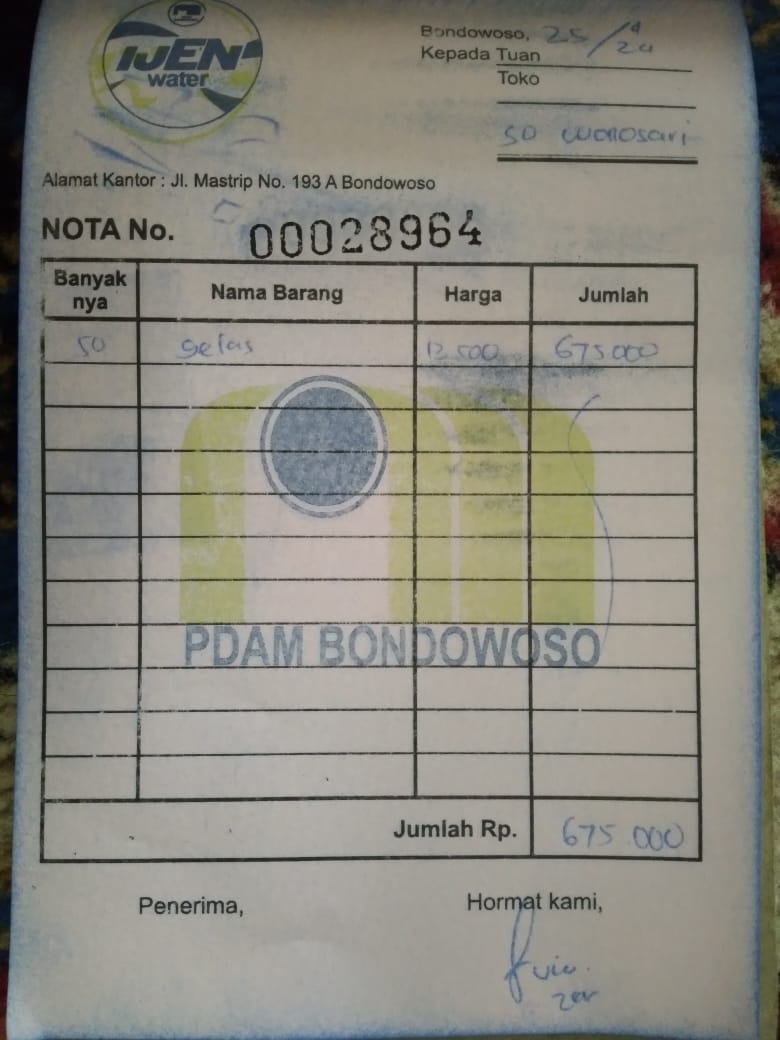 IJEN
water
Bondowoso, 25/4 24
Kepada Tuan
Toko
SD Wonosari
Alamat Kantor : Jl. Mastrip No. 193 A Bondowoso
NOTA No. 00028964
Banyak nya Nama Barang Harga Jumlah
50 gelas 13.500 675000
PDAM BONDOWOSO
Jumlah Rp. 675.000
Penerima, Hormat kami,